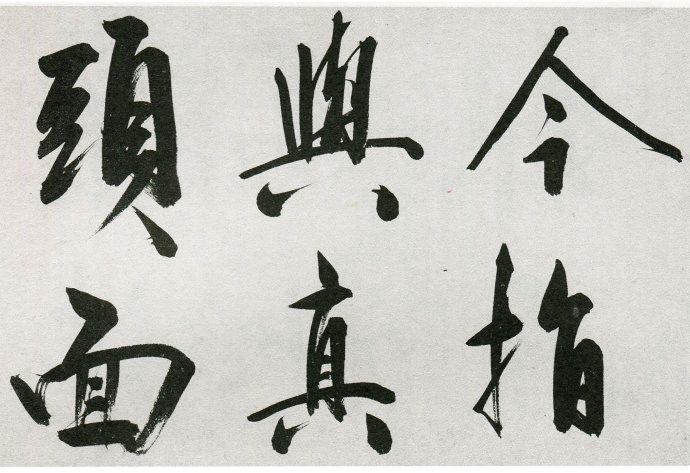 今指
與真
頭面